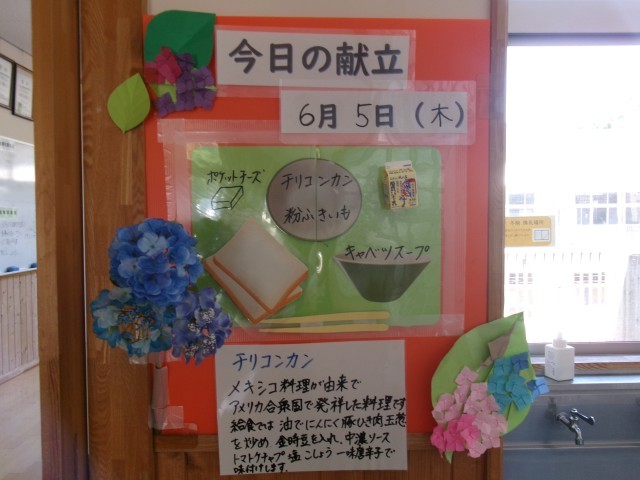 今日の献立
6月 5日 (木)
ポケットチーズ
チリコンカン
粉ふきいも
キャベツスープ
チリコンカン
メキシコ料理が由来で
アメリカ合衆国で発祥した料理です
給食では 油でにんにく豚ひき肉玉葱
を炒め 金時豆を入れ、中濃ソース
トマトケチャプ 塩 こしょう 一味唐辛子で
味付けします。